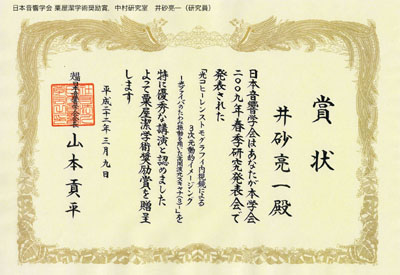 日本音響学会 粟屋潔学術奨励賞，中村研究室　井砂亮一（研究員）
賞状
井砂亮一殿
日本音響学会はあなたが本学会
二〇〇九年春季研究発表会で
発表された
「光コヒーレンストモグラフィ内視鏡による
3次元動的イメージング
－光ファイバのたわみ振動を用いたスキャナ(3)－」を
特に優秀な講演と認めました
よって粟屋潔学術奨励賞を贈呈
します
平成二十二年三月九日
日本音響学会会長
山本貢平